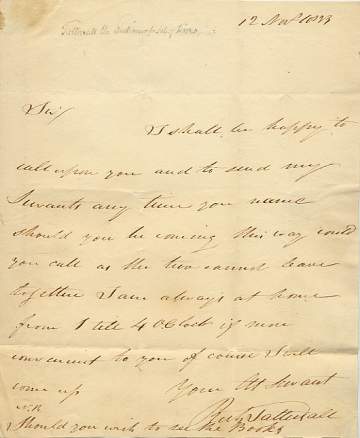 12 Novr 1833
Tattersall the
Sir/
I shall be happy to
call upon you and to send my
Servants any time you name
should you be coming this way could
you call as the two cannot leave
together I am always at home
from 1 till 4 OClock if more
convenient to you of course I will
come up Your Ob Servant
Richd Tattersall
N.B.
Should you wish to see the Books